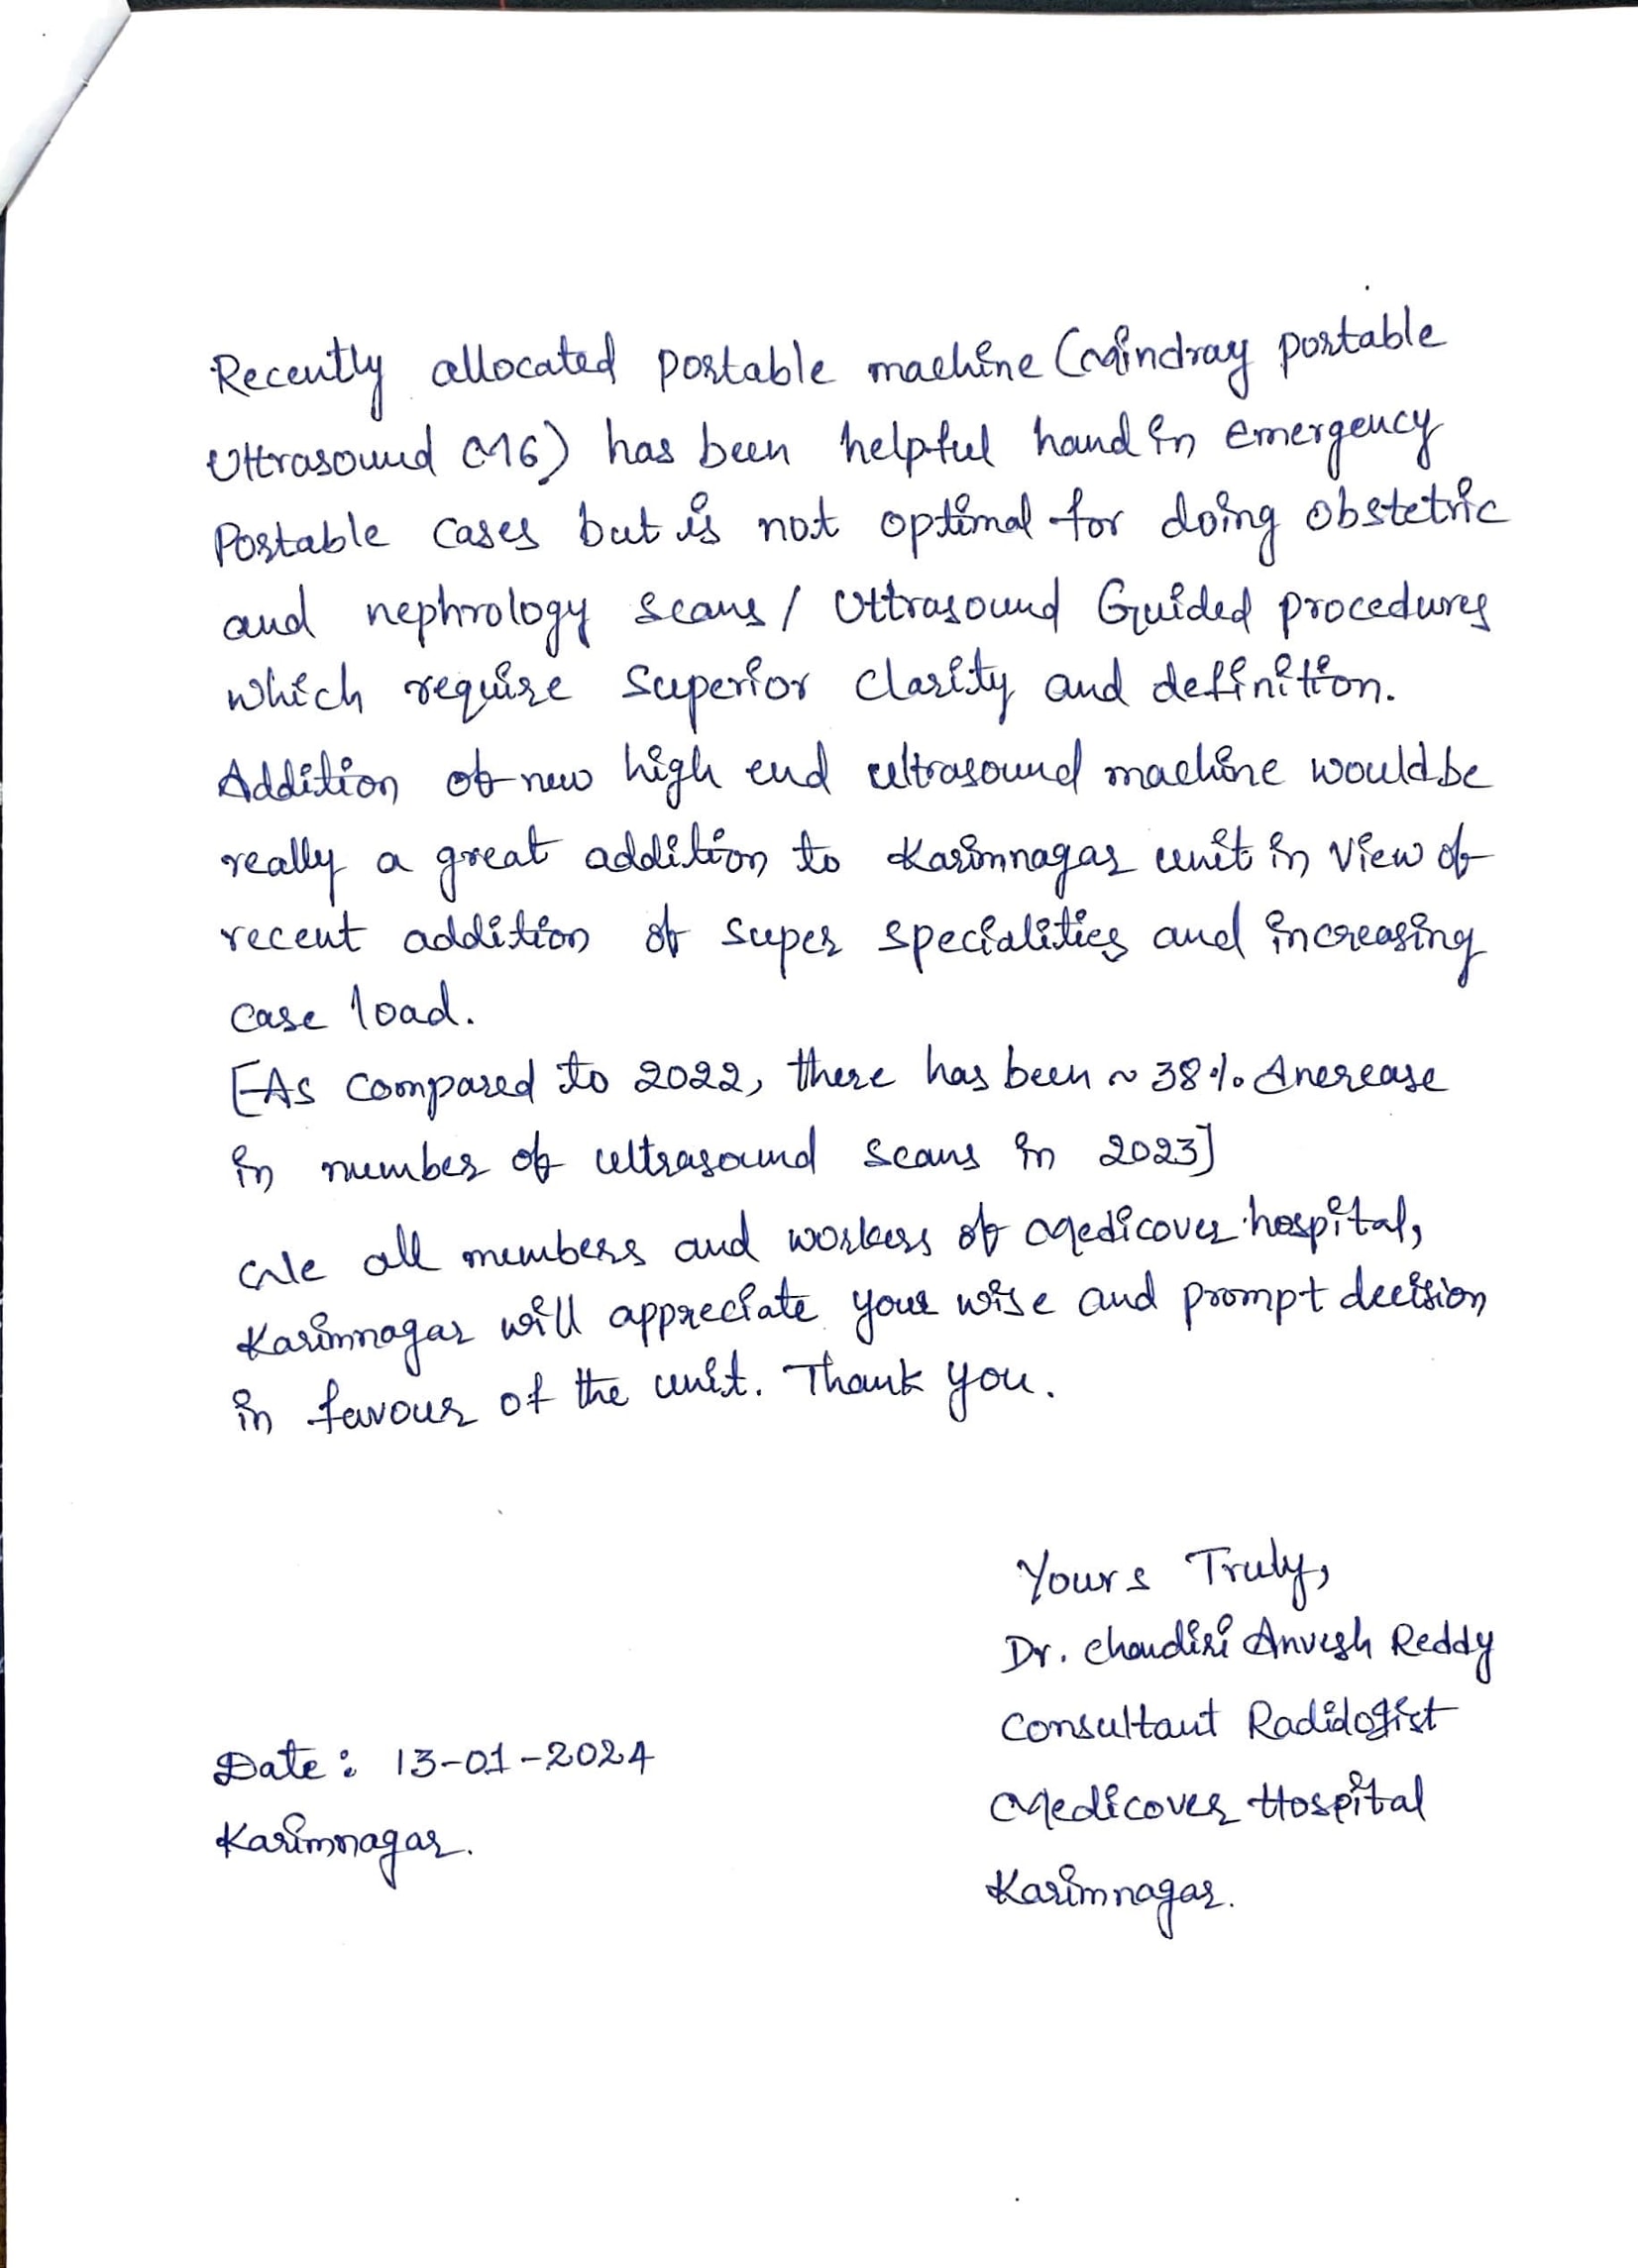 Recently allocated portable machine (Mindray portable
Ultrasound M6) has been helpful hand in emergency
Portable cases but is not optimal for doing obstetric
and nephrology scans / Ultrasound Guided procedures
which require superior clarity and definition.
Addition of new high end ultrasound machine would be
really a great addition to Karimnagar unit in view of
recent addition of super specialities and increasing
case load.
[As compared to 2022, there has been ~ 38% Increase
in number of ultrasound scans in 2023]
We all members and workers of Medicover hospital,
Karimnagar will appreciate your wise and prompt decision
in favour of the unit. Thank you.
Yours Truly,
Dr. Chandiri Anvesh Reddy
Consultant Radiologist
Medicover Hospital
Karimnagar.
Date: 13-01-2024
Karimnagar.